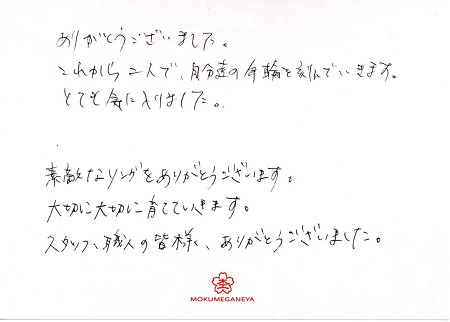 ありがとうございました。
これから二人で、自分達の年輪を刻んでいきます。
とても気に入りました。
素敵なリングをありがとうございます。
大切に大切に育てていきます。
スタッフ、職人の皆様、ありがとうございました。
MOKUMEGANEYA